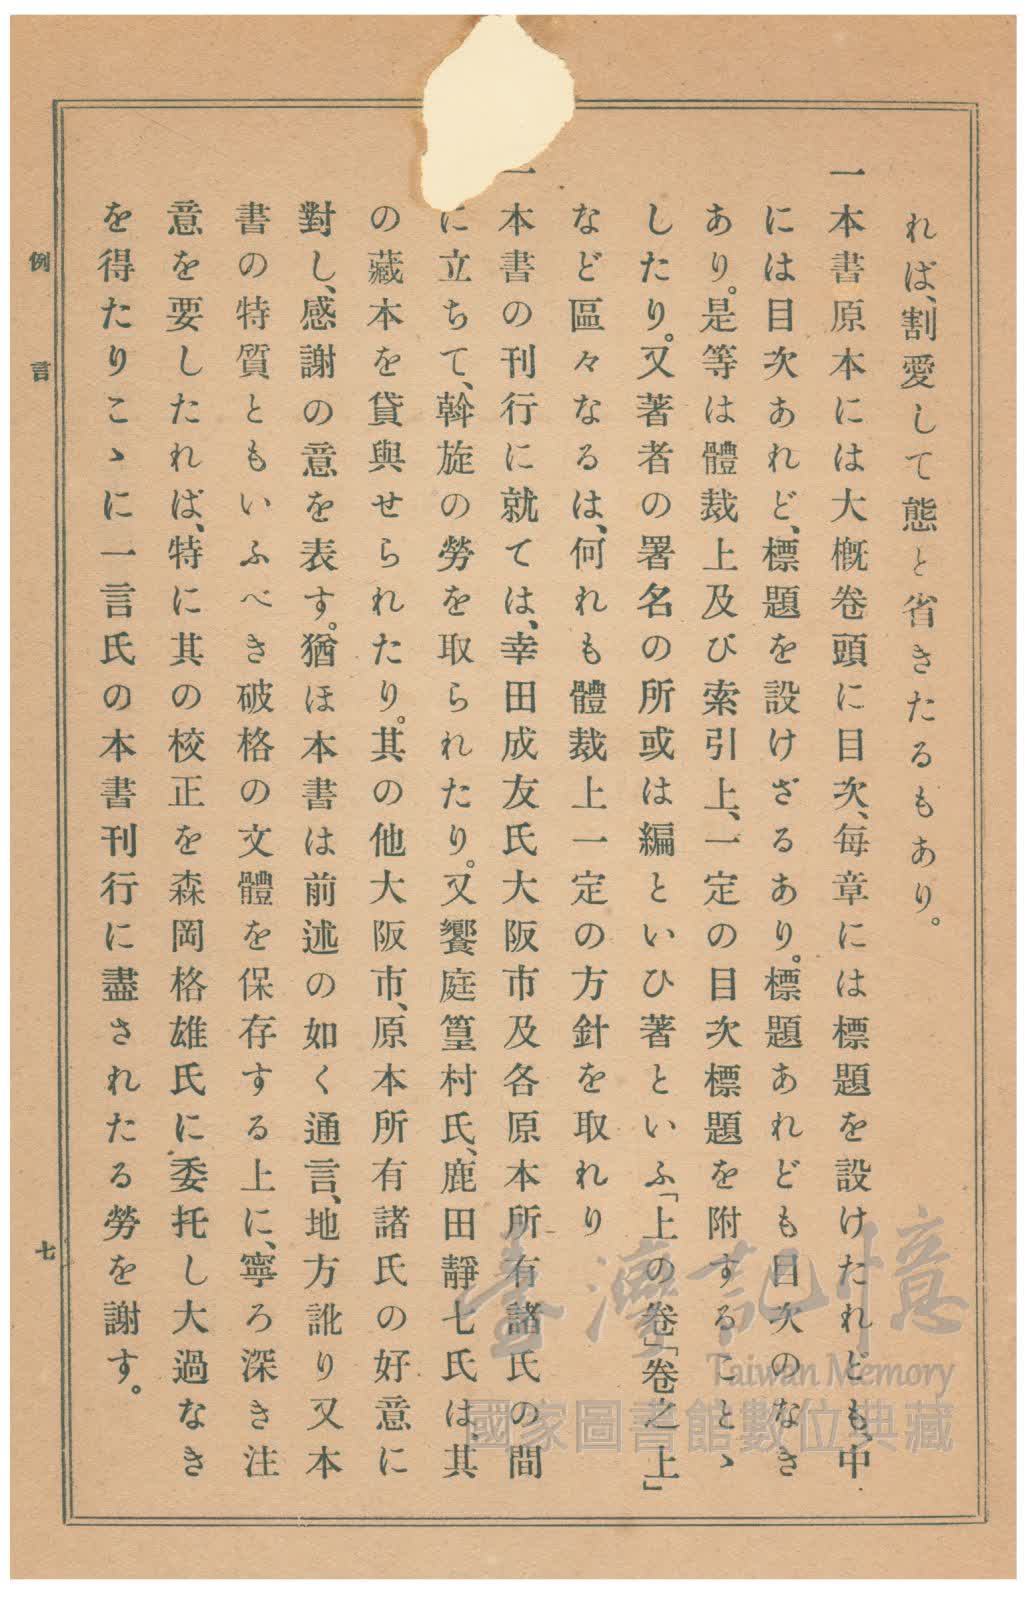 れば、割愛して態と省きたるもあり。
一本書原本には大槪卷頭に目次、每章には標題を設けたれども、中
には目次あれど、標題を設けざるあり。標題あれども目次のなき
あり。是等は體裁上及び索引上、一定の目次標題を附することゝ
したり。又著者の署名の所或は編といひ著といふ「上の卷」「卷之上」
など區々なるは、何れも體裁上一定の方針を取れり
一本書の刊行に就ては、幸田成友氏大阪市及各原本所有諸氏の間
に立ちて、斡旋の勞を取られたり。又饗庭篁村氏、鹿田靜七氏は、其
の藏本を貸與せられたり。其の他大阪市、原本所有諸氏の好意に
對し、感謝の意を表す。猶ほ本書は前述の如く通言、地方訛り又本
書の特質ともいふべき破格の文體を保存する上に、寧ろ深き注
意を要したれば、特に其の校正を森岡格雄氏に委托し大過なき
を得たりこゝに一言氏の本書刊行に盡されたる勞を謝す。
例言
七
臺灣記憶
Taiwan Memory
國家圖書館數位典藏